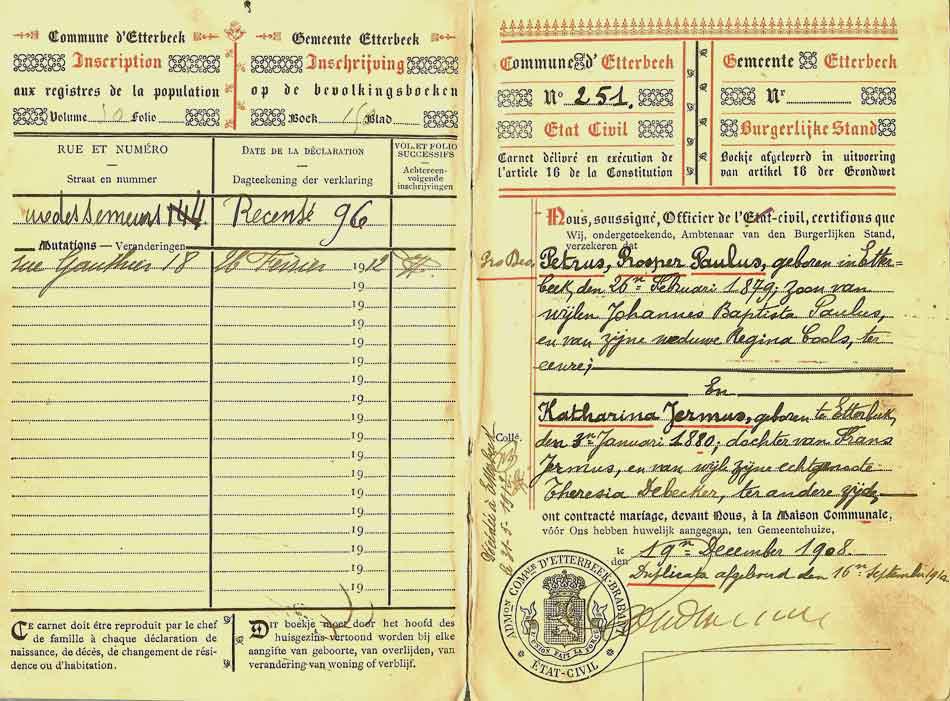 Commune d'Etterbeek
Inscription
aux registres de la population
Volume 10 Folio
Gemeente Etterbeek
Inschrijving
op de bevolkingsboeken
Boek Blad
RUE ET NUMÉRO
Straat en nummer
DATE DE LA DÉCLARATION
Dagteekening der verklaring
VOL. ET FOLIO SUCCESSIFS
Achtereen-
volgende
inschrijvingen
144 Recensé 96
Mutations — Veranderingen
rue Gauthier 18 26 Février 1912
19
19
19
19
19
19
19
19
19
19
19
19
19
19
Ce carnet doit être reproduit par le chef
de famille à chaque déclaration de
naissance, de décès, de changement de rési-
dence ou d'habitation.
Dit boekje moet door het hoofd des
huisgezins vertoond worden bij elke
aangifte van geboorte, van overlijden, van
verandering van woning of verblijf.
Commune d'Etterbeek
No 251.
Etat Civil
Carnet délivré en exécution de
l'article 16 de la Constitution
Gemeente Etterbeek
Nr
Burgerlijke Stand
Boekje afgeleverd in uitvoering
van artikel 16 der Grondwet
Nous, soussigné, Officier de l'Etat-civil, certifions que
Wij, ondergeteekende, Ambtenaar van den Burgerlijken Stand,
verzekeren dat
Petrus, Prosper Paulus, geboren in Etter-
beek, den 26n Februari 1.879; zoon van
wijlen Johannes Baptista Paulus,
en van zijne weduwe Regina Cools, ter
eenre;
En
Katharina Jermus, geboren te Etterbeek,
den 3n Januari 1.880; dochter van Frans
Jermus, en van wijle zijne echtgenoote
Theresia Debecker, ter andere zijde,
Collé.
ont contracté mariage, devant Nous, à la Maison Communale,
vóór Ons hebben huwelijk aangegaan, ten Gemeentehuize,
le
den 19n December 1908.
Duplicata afgeboud den 16n September 1912
ADMON COMALE D'ETTERBEEK-BRABANT
L'UNION FAIT LA FORCE
ÉTAT-CIVIL